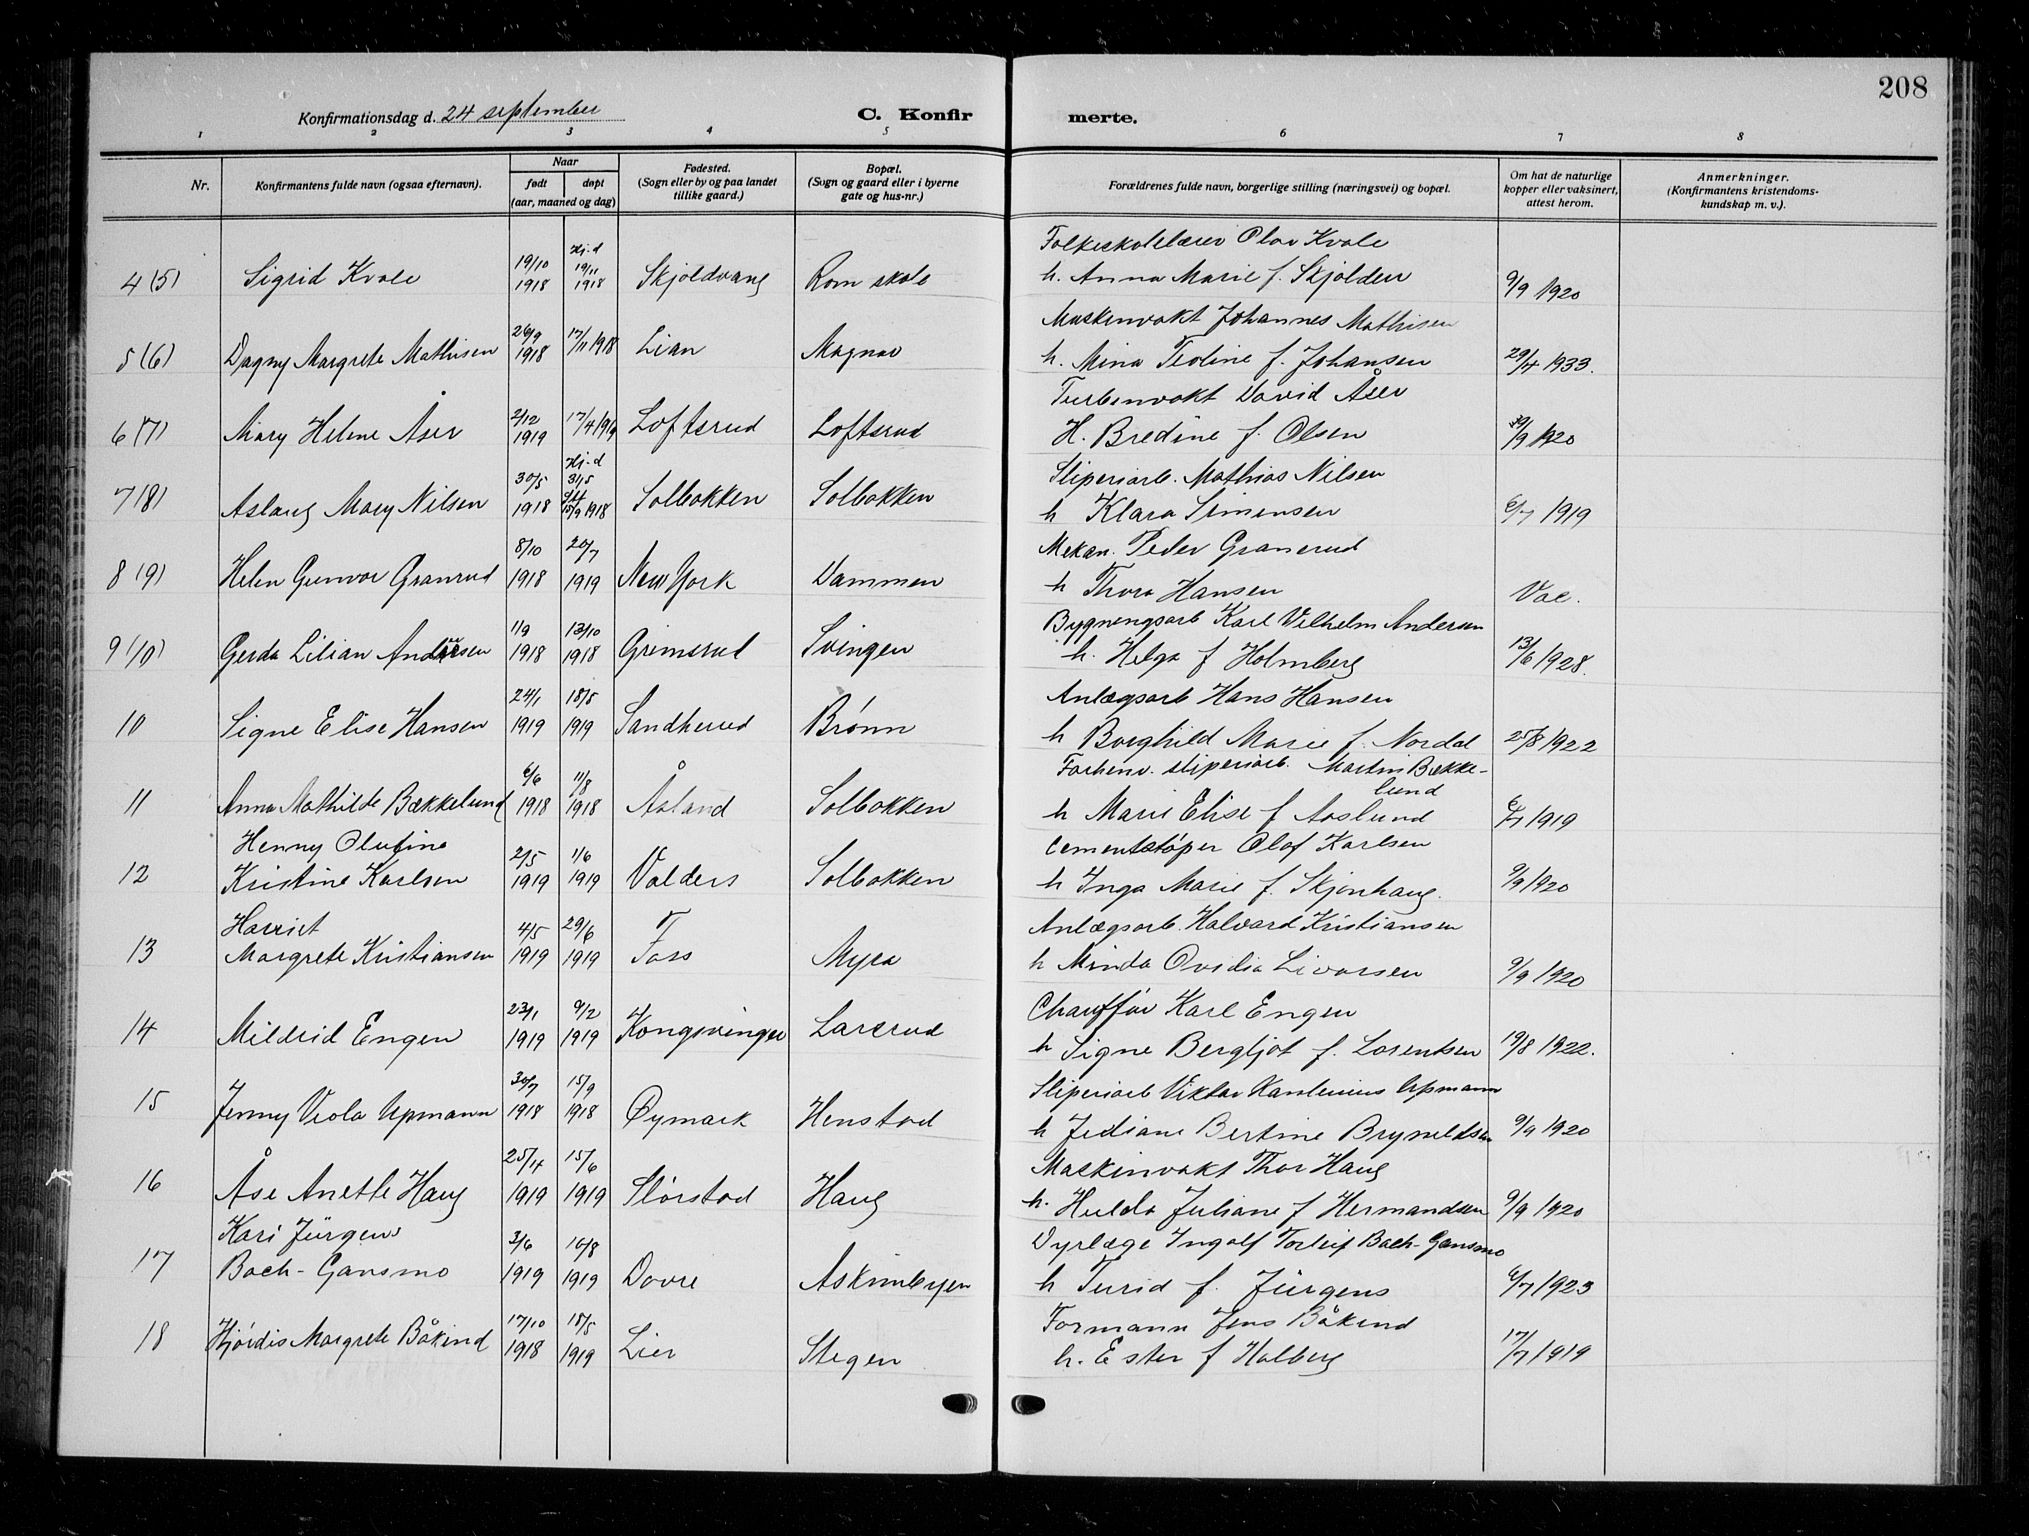 208
Konfirmationsdag d. 24 september
C. Konfirmerte.
1 2 3 4 5 6 7 8
Nr.
Konfirmantens fulde navn (ogsaa efternavn).
Naar
født døpt
(aar, maaned og dag)
Fødested.
(Sogn eller by og paa landet
tillike gaard.)
Bopæl.
(Sogn og gaard eller i byerne
gate og hus-nr.)
Forældrenes fulde navn, borgerlige stilling (næringsvei) og bopæl.
Om hat de naturlige
kopper eller vaksinert,
attest herom.
Anmerkninger.
(Konfirmantens kristendoms-
kundskap m. v.).
Folkeskolelærer Olav Kvale
4 (5) Sigrid Kvale 19/10 1918 Hj.d 19/11 1918 Skjoldvang Rom skole h. Anna Marie f. Skjolden 9/9 1920
Maskinvakt Johannes Mathisen
5 (6) Dagny Margrete Mathisen 26/9 1918 17/11 1918 Lian Magnor h. Mina Teoline f. Johansen 29/4 1933.
Turbinvakt David Åser
6 (7) Mary Helene Åser 2/12 1919 17/4 1919 Loftsrud Loftsrud H. Bredine f. Olsen 30/9 1920
Sliperiarb. Mathias Nilsen
7 (8) Aslaug Mary Nilsen 30/5 1918 Hj.d 31/5 15/9 1918 Solbakken Solbakken h Klara Simensen 6/7 1919
Mekan. Peder Granerud
8 (9) Helen Gunvor Granrud 8/10 1918 20/7 1919 New York Dammen h Thora Hansen Vac.
Bygningsarb Karl Vilhelm Andersen
9 (10) Gerda Lilian Andersen 1/9 1918 13/10 1918 Grimsrud Svingen h. Helga f Holmberg 13/6 1928.
Anlægsarb Hans Hansen
10 Signe Elise Hansen 24/1 1919 18/5 1919 Sandherud Brønn h Borghild Marie f. Nordal 25/8 1922
Forhenv. sliperiarb. Martin Bække-
lund
11 Anna Mathilde Bækkelund 6/6 1918 11/8 1918 Åsland Solbakken h Marie Elise f Aaslund 6/7 1919
Henny Olufine Cementstøper Olaf Karlsen
12 Kristine Karlsen 2/5 1919 1/6 1919 Valders Solbakken h Inga Marie f. Skjønhaug. 9/9 1920
Harriet Anlægsarb. Halvard Kristiansen
13 Margrete Kristiansen 4/5 1919 29/6 1919 Foss Myra h Minda Ovidia Livarsen 9/9 1920
Chauffør Karl Engen
14 Mildrid Engen 23/1 1919 9/2 1919 Kongsvinger Larsrud h Signe Bergljot f. Lorentsen 19/8 1922.
Sliperiarb Viktor Upmann
15 Jenny Viola Upmann 30/7 1918 15/9 1918 Øymark Henstad h Jediane Bertine Bryneldsen 9/9 1920
Maskinvakt Thor Haug
16 Åse Anette Haug 25/4 1919 15/6 1919 Slorstad Haug h. Hulda Juliane f Hermandsen 9/9 1920
Kari Jürgens Dyrlæge Ingolf Torleif Bach-Gansmo
17 Bach-Gansmo 3/6 1919 10/8 1919 Dovre Askimbyen h Turid f. Jürgens 6/7 1923
Formann Jens Båkind
18 Hjørdis Margrete Båkind 17/10 1918 18/5 1919 Lier Stegen h. Ester f Halberg 17/7 1919